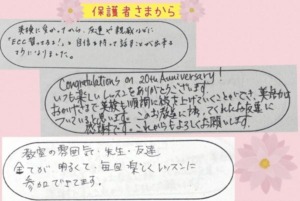 保護者さまから
英検に受かってから、友達や親戚などに
"ECC習ってるよ!"と自信を持って話すことが出来る
ようになりました。
Congratulations on 20th Anniversary!
いつも楽しいレッスンをありがとうございます。
おかげさまで英検も順調に続き上げていくことができ、英語力は
ついていると思います。この教室に誘ってくれたお友達に
感謝です。これからもよろしくお願いします。
教室の雰囲気・先生・友達
全てが明るくて、毎回楽しくレッスンに
参加できてます。